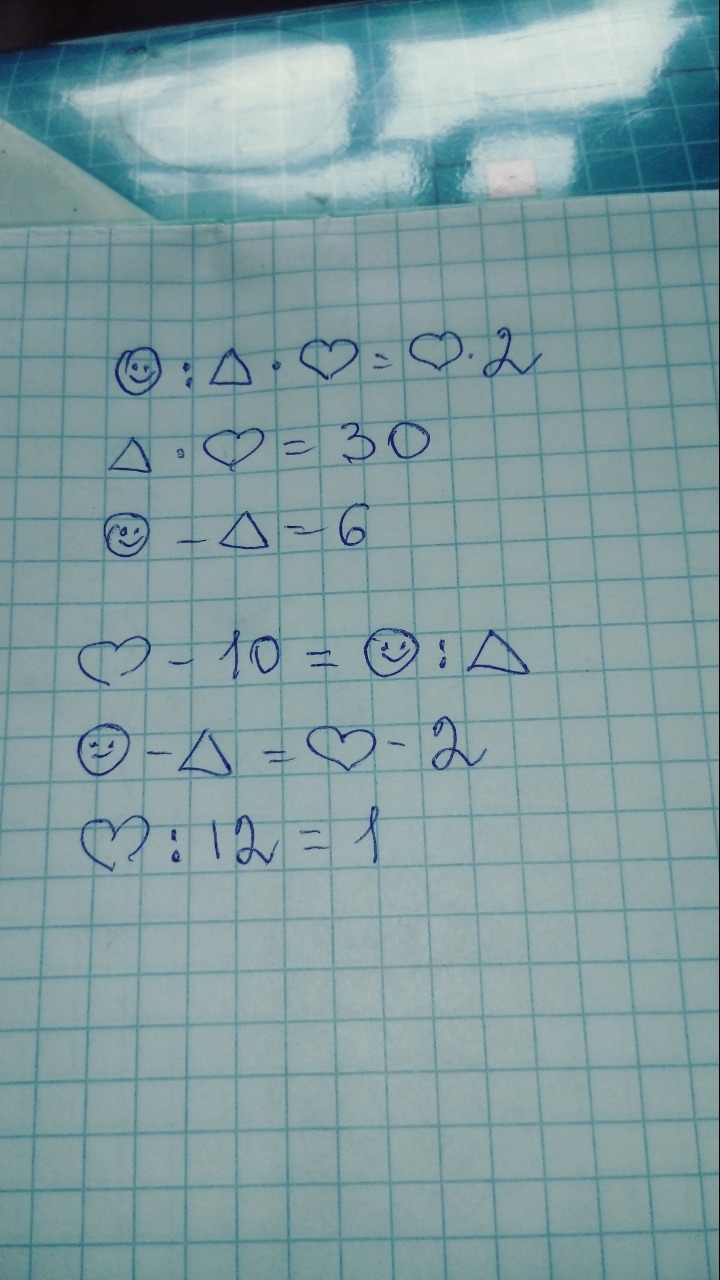 ☺ : △ · ♡ = ♡ · 2
△ · ♡ = 30
☺ - △ = 6
♡ - 10 = ☺ : △
☺ - △ = ♡ - 2
♡ : 12 = 1